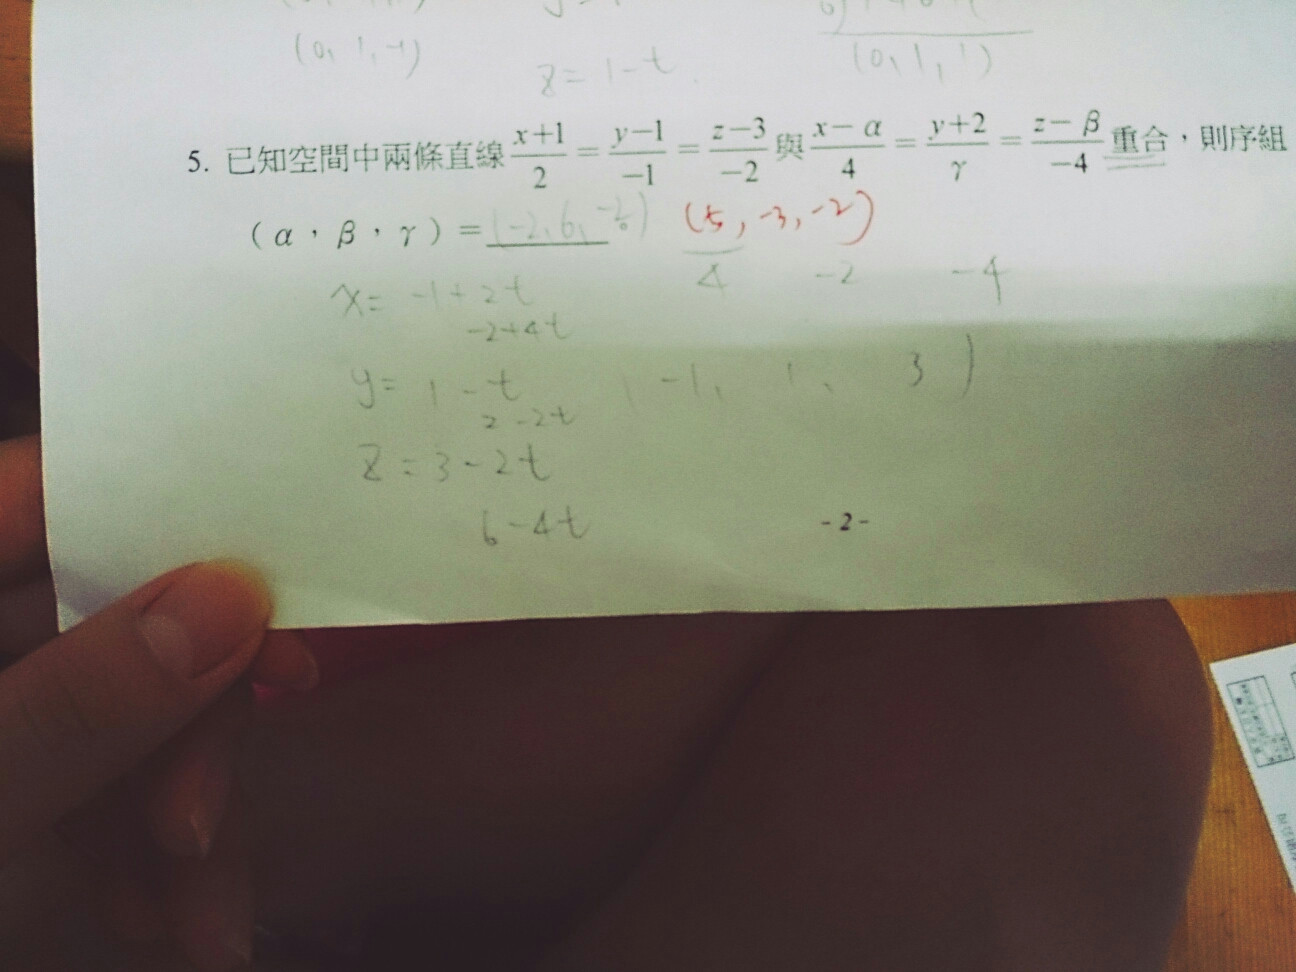 (0, 1, -1)
z = 1-t
(0, 1, 1)
5. 已知空間中兩條直線 x+1/2 = y-1/-1 = z-3/-2 與 x-α/4 = y+2/γ = z-β/-4 重合,則序組
(α,β,γ)= (-2, 6, ) (5, -3, -2)
4 -2 -4
x= -1+2t
-2+4t
y= 1-t (-1, 1, 3)
2-2t
z=3-2t
6-4t
-2-